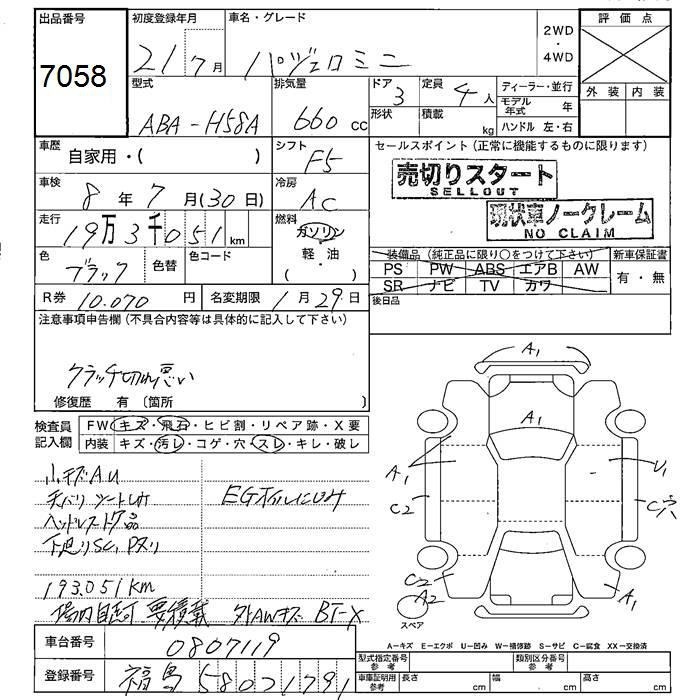 出品番号
7058
初度登録年月
21 7月
車名・グレード
パジェロミニ
2WD
・
4WD
評価点
外装 内装
型式
ABA-H58A
排気量
660 cc
ドア 3
形状
定員 4人
積載 kg
ディーラー・並行
モデル年式 年
ハンドル 左・右
車歴
自家用・( )
シフト
F5
セールスポイント (正常に機能するものに限ります)
売切りスタート
SELLOUT
現状車ノークレーム
NO CLAIM
車検
8年7月(30日)
冷房
AC
走行
19万3千051km
燃料
ガソリン
・
軽・油
( )
色
ブラック
色替
色コード
装備品 (純正品に限り○をつけて下さい)
PS PW ABS エアB AW
SR ナビ TV カワ
新車保証書
有・無
R券 10.070円
名変期限 1月29日
後日品
注意事項申告欄 (不具合内容等は具体的に記入して下さい)
クラッチ切れ悪い
修復歴 有 〔箇所 〕
検査員
記入欄
FW キズ・飛石・ヒビ割・リペア跡・X要
内装 キズ・汚レ・コゲ・穴・スレ・キレ・破レ
小キズAU
天バリ シートしみ
EGオイルにじみ
ヘッドレスト欠品
下廻りSC,Pヌリ
193.051km
場内自走可 要積載 外AWキズ BT-X
A1
A1
A1
C2
U1
C穴
C2
A2
A1
スペア
A-キズ E-エクボ U-凹み W-補修跡 S-サビ C-腐食 XX-交換済
車台番号
0807119
登録番号
福島580て1791
型式指定番号
参考
類別区分番号
参考
車庫証明用
参考
長さ cm
幅 cm
高さ cm